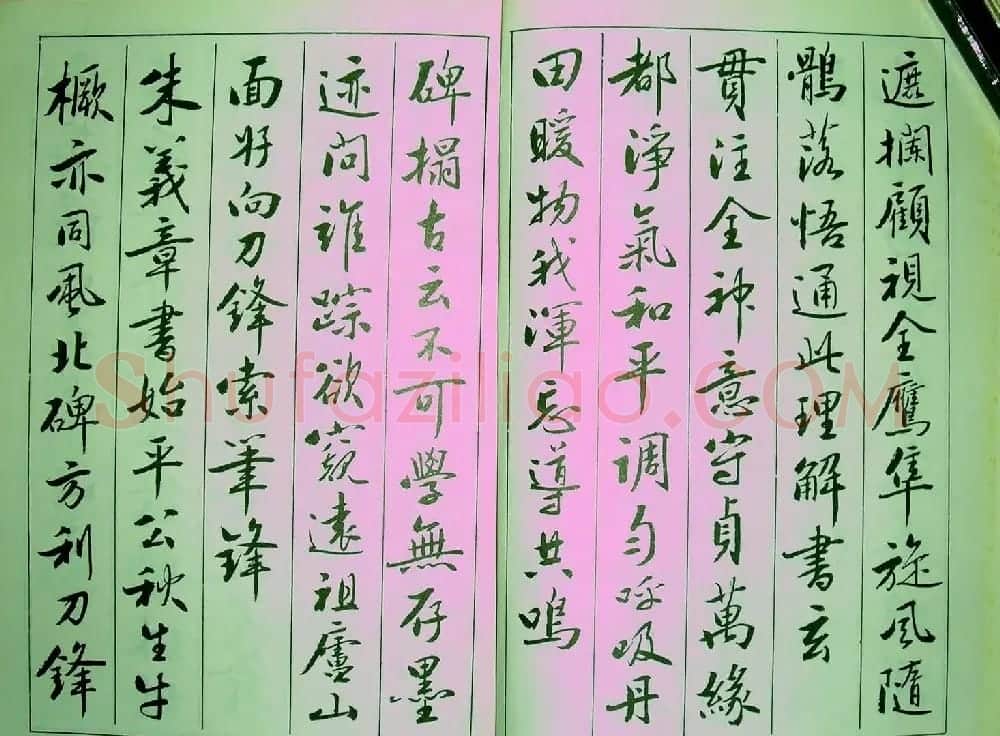 遮攔顧視全鷹隼旋風隨
鶻落悟通此理解書玄
貫注全神意守貞萬緣
都淨氣和平調勻呼吸丹
田暖物我渾忘導共鳴
碑搨古云不可學無存墨
迹問誰踪欲窺遠祖廬山
面好向刀鋒索筆鋒
朱義章書始平公秋生牛
橛亦同風北碑方利刀鋒
Shufaziliao.COM